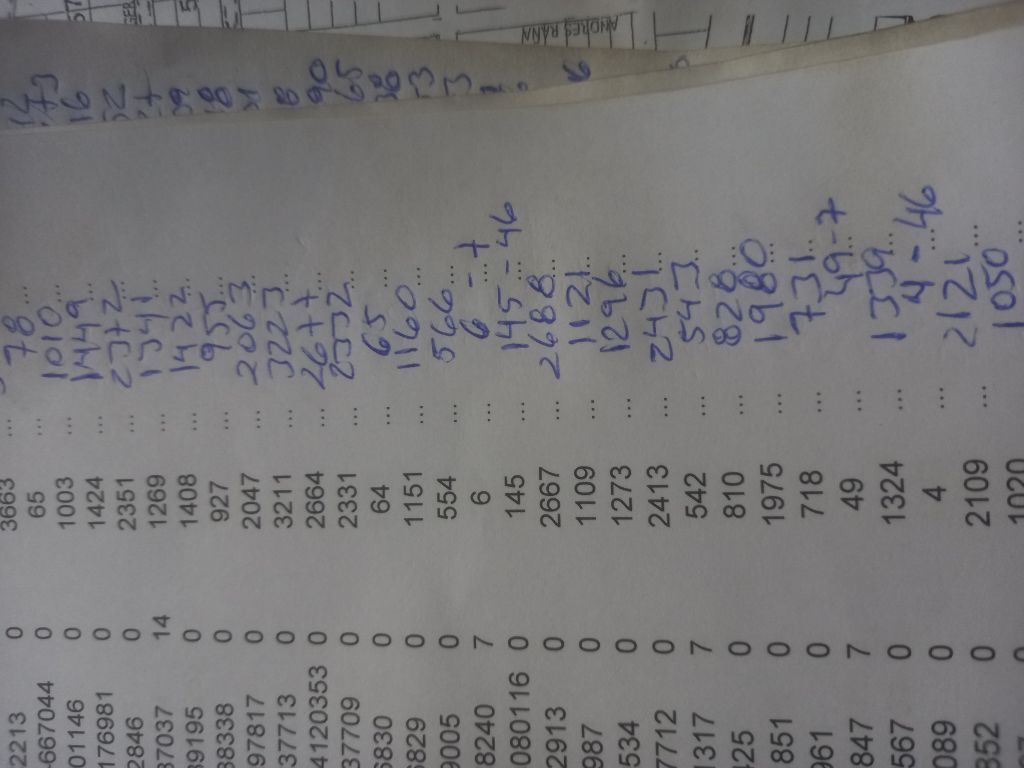 ANDRES RANN
2213 0 3663 ...
467044 0 65 ... 78 ...
01146 0 1003 ... 1010 ...
176981 0 1424 ... 1449 ...
2846 0 2351 ... 2372 ...
37037 14 1269 ... 1341 ...
39195 0 1408 ... 1422 ...
38338 0 927 ... 955 ...
97817 0 2047 ... 2063 ...
37713 0 3211 ... 3223 ...
4120353 0 2664 ... 2677 ...
37709 0 2331 ... 2332 ...
6830 0 64 ... 65 ...
6829 0 1151 ... 1160 ...
9005 0 554 ... 566 ...
8240 7 6 ... 6 - 7
080116 0 145 ... 145 - 46
2913 0 2667 ... 2688 ...
987 0 1109 ... 1121 ...
534 0 1273 ... 1296 ...
7712 0 2413 ... 2431 ...
1317 7 542 ... 543 ...
425 0 810 ... 828 ...
1851 0 1975 ... 1980 ...
961 0 718 ... 731 ...
847 7 49 ... 49 - 7
567 0 1324 ... 1339 ...
089 0 4 ... 4 - 46
352 0 2109 ... 2121 ...
0 1020 ... 1050 ...